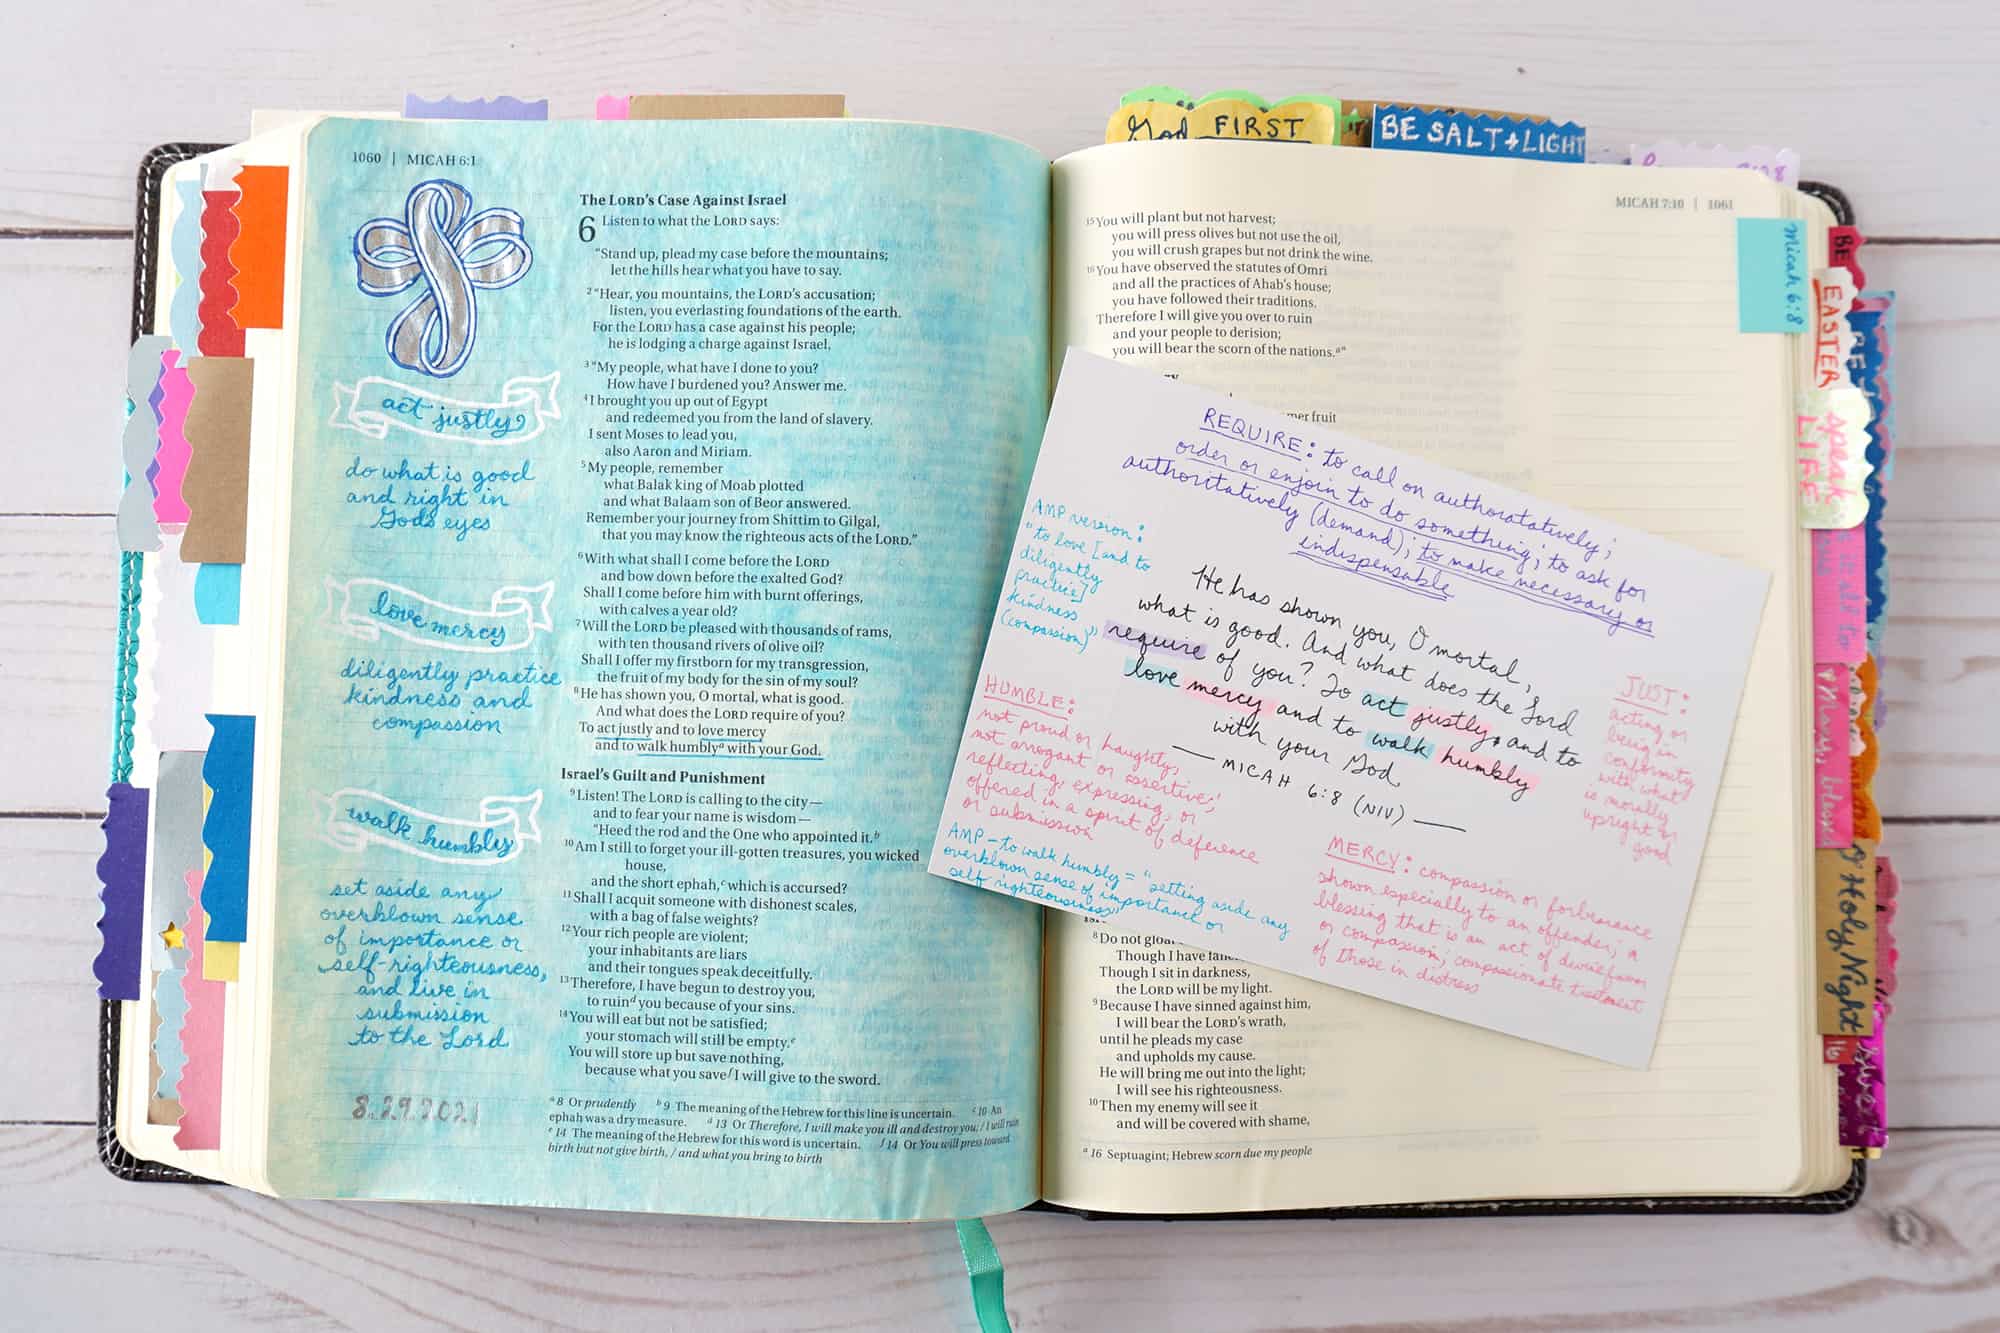 God FIRST
BE SALT + LIGHT
1060 | MICAH 6:1
act justly,
do what is good
and right in
God's eyes
love mercy
diligently practice
kindness and
compassion
walk humbly
set aside any
overblown sense
of importance or
self-righteousness,
and live in
submission
to the Lord
8.29.2021
The LORD's Case Against Israel
6 Listen to what the LORD says:
"Stand up, plead my case before the mountains;
let the hills hear what you have to say.
2 "Hear, you mountains, the LORD's accusation;
listen, you everlasting foundations of the earth.
For the LORD has a case against his people;
he is lodging a charge against Israel.
3 "My people, what have I done to you?
How have I burdened you? Answer me.
4 I brought you up out of Egypt
and redeemed you from the land of slavery.
I sent Moses to lead you,
also Aaron and Miriam.
5 My people, remember
what Balak king of Moab plotted
and what Balaam son of Beor answered.
Remember your journey from Shittim to Gilgal,
that you may know the righteous acts of the LORD."
6 With what shall I come before the LORD
and bow down before the exalted God?
Shall I come before him with burnt offerings,
with calves a year old?
7 Will the LORD be pleased with thousands of rams,
with ten thousand rivers of olive oil?
Shall I offer my firstborn for my transgression,
the fruit of my body for the sin of my soul?
8 He has shown you, O mortal, what is good.
And what does the LORD require of you?
To act justly and to love mercy
and to walk humbly a with your God.
Israel's Guilt and Punishment
9 Listen! The LORD is calling to the city—
and to fear your name is wisdom—
"Heed the rod and the One who appointed it. b
10 Am I still to forget your ill-gotten treasures, you wicked
house,
and the short ephah, c which is accursed?
11 Shall I acquit someone with dishonest scales,
with a bag of false weights?
12 Your rich people are violent;
your inhabitants are liars
and their tongues speak deceitfully.
13 Therefore, I have begun to destroy you,
to ruin d you because of your sins.
14 You will eat but not be satisfied;
your stomach will still be empty. e
You will store up but save nothing,
because what you save f I will give to the sword.
a 8 Or prudently b 9 The meaning of the Hebrew for this line is uncertain. c 10 An
ephah was a dry measure. d 13 Or Therefore, I will make you ill and destroy you; / I will ruin
e 14 The meaning of the Hebrew for this word is uncertain. f 14 Or You will press toward
birth but not give birth, / and what you bring to birth
MICAH 7:10 | 1061
15 You will plant but not harvest;
you will press olives but not use the oil,
you will crush grapes but not drink the wine.
16 You have observed the statutes of Omri
and all the practices of Ahab's house;
you have followed their traditions.
Therefore I will give you over to ruin
and your people to derision;
you will bear the scorn of the nations. a"
fruit
REQUIRE: to call on authoratatively;
order or enjoin to do something; to ask for
authoritatively (demand); to make necessary or
indispensable
AMP version:
"to love [and to
diligently
practice]
kindness
(compassion)"
He has shown you, O mortal,
what is good. And what does the Lord
require of you? To act justly, and to
love mercy and to walk humbly
with your God.
— MICAH 6:8 (NIV) —
HUMBLE:
not proud or haughty,
not arrogant or assertive;
reflecting, expressing, or
offered in a spirit of deference
or submission
AMP - to walk humbly = "setting aside any
overblown sense of importance or
self righteousness"
JUST:
acting or
being in
conformity
with what
is morally
upright or
good
MERCY: compassion or forbearance
shown especially to an offender; a
blessing that is an act of divine favor
or compassion; compassionate treatment
of those in distress
8 Do not gloat
Though I have
Though I sit in darkness,
the LORD will be my light.
9 Because I have sinned against him,
I will bear the LORD's wrath,
until he pleads my case
and upholds my cause.
He will bring me out into the light;
I will see his righteousness.
10 Then my enemy will see it
and will be covered with shame,
a 16 Septuagint; Hebrew scorn due my people
Micah 6:8
BE
EASTER
BE
speak
LIFE
O Holy Night